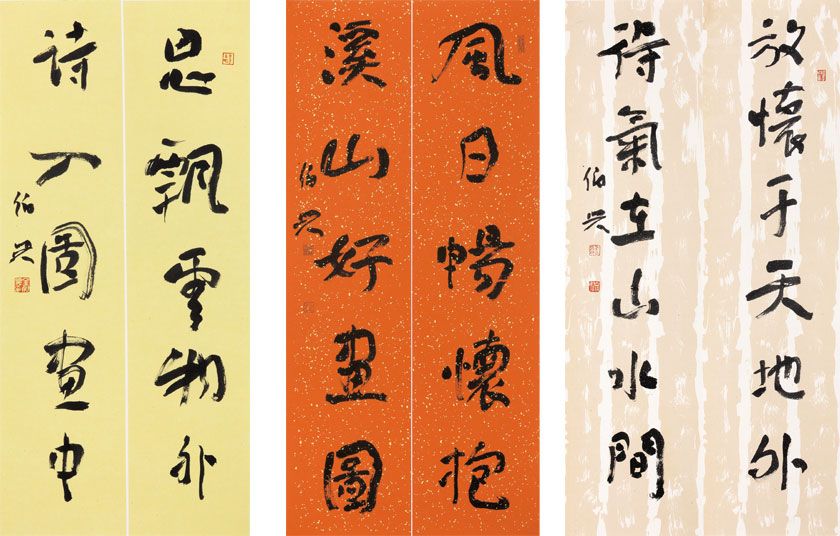 思飄雲物外
詩入圖畫中
風日暢懷抱
溪山好畫圖
放懷于天地外
得氣在山水間